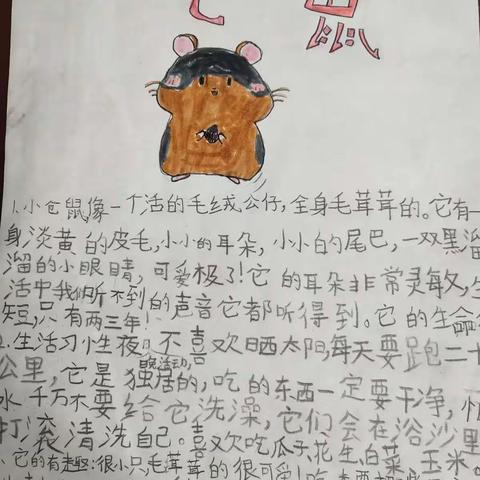 仓鼠
1.小仓鼠像一个活的毛绒公仔,全身毛茸茸的。它有一
身淡黄的皮毛,小小的耳朵,小小的尾巴,一双黑溜
溜的小眼睛,可爱极了!它的耳朵非常灵敏,生
活中我们听不到的声音它都听得到。它的生命很
短,只有两三年!
2.生活习性夜晚活动,不喜欢晒太阳,每天要跑二十
公里,它是独居的,吃的东西一定要干净,怕
水千万不要给它洗澡,它们会在浴沙里
打滚清洗自己。喜欢吃瓜子,花生,白菜,玉米。
它的有趣:很小只,毛茸茸的很可爱!吃